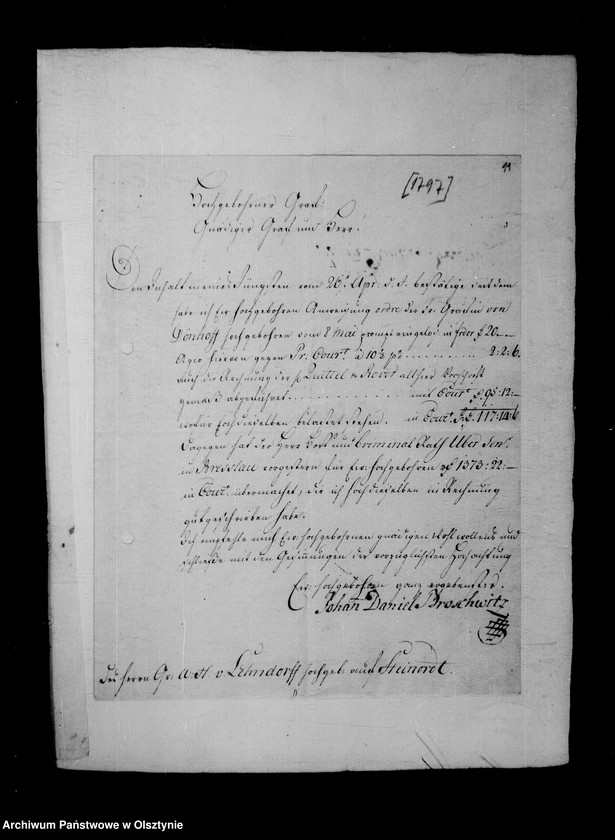 44
[1797]
Hochgebohrner Graf!
Gnädiger Graf und Herr!
Den Inhalt meines Jüngsten vom 26t Apr. d. J. bestätige seit dem
habe ich Ew. Hochgebohren Anweisung ordre der Fr. Gräfin von
Dönhoff Hochgebohren vom 8 Mai prompt eingelöst in frdor 20.—
Agio hievon gegen Pr: Court à 10½ pc .......... 2:2:6.
auch die Rechnung der allhier Vorschrift
gemäß abgeführet .......... mit Court 95:12:—
wofür Hochdieselben belastet stehen. in Court 117:14:6
Dagegen hat der Herr und Criminal Rath Uber Senr
in Bresslau vorgestern für Ew. Hochgebohren 1373:22:—
in Court übermachet, die ich Hochdieselben in Rechnung
gutgeschrieben habe.
Ich empfehle mich Ew. Hochgebohrnen gnädigen Wohlwollens und
mit den Gesinnungen der vorzüglichsten Hochachtung
Ew. Hochgebohren ganz ergebenster
Johan Daniel Broschwitz
Des Herrn Gr: A: H v Lehndorff Hochgeb: auf Steinordt.
Archiwum Państwowe w Olsztynie